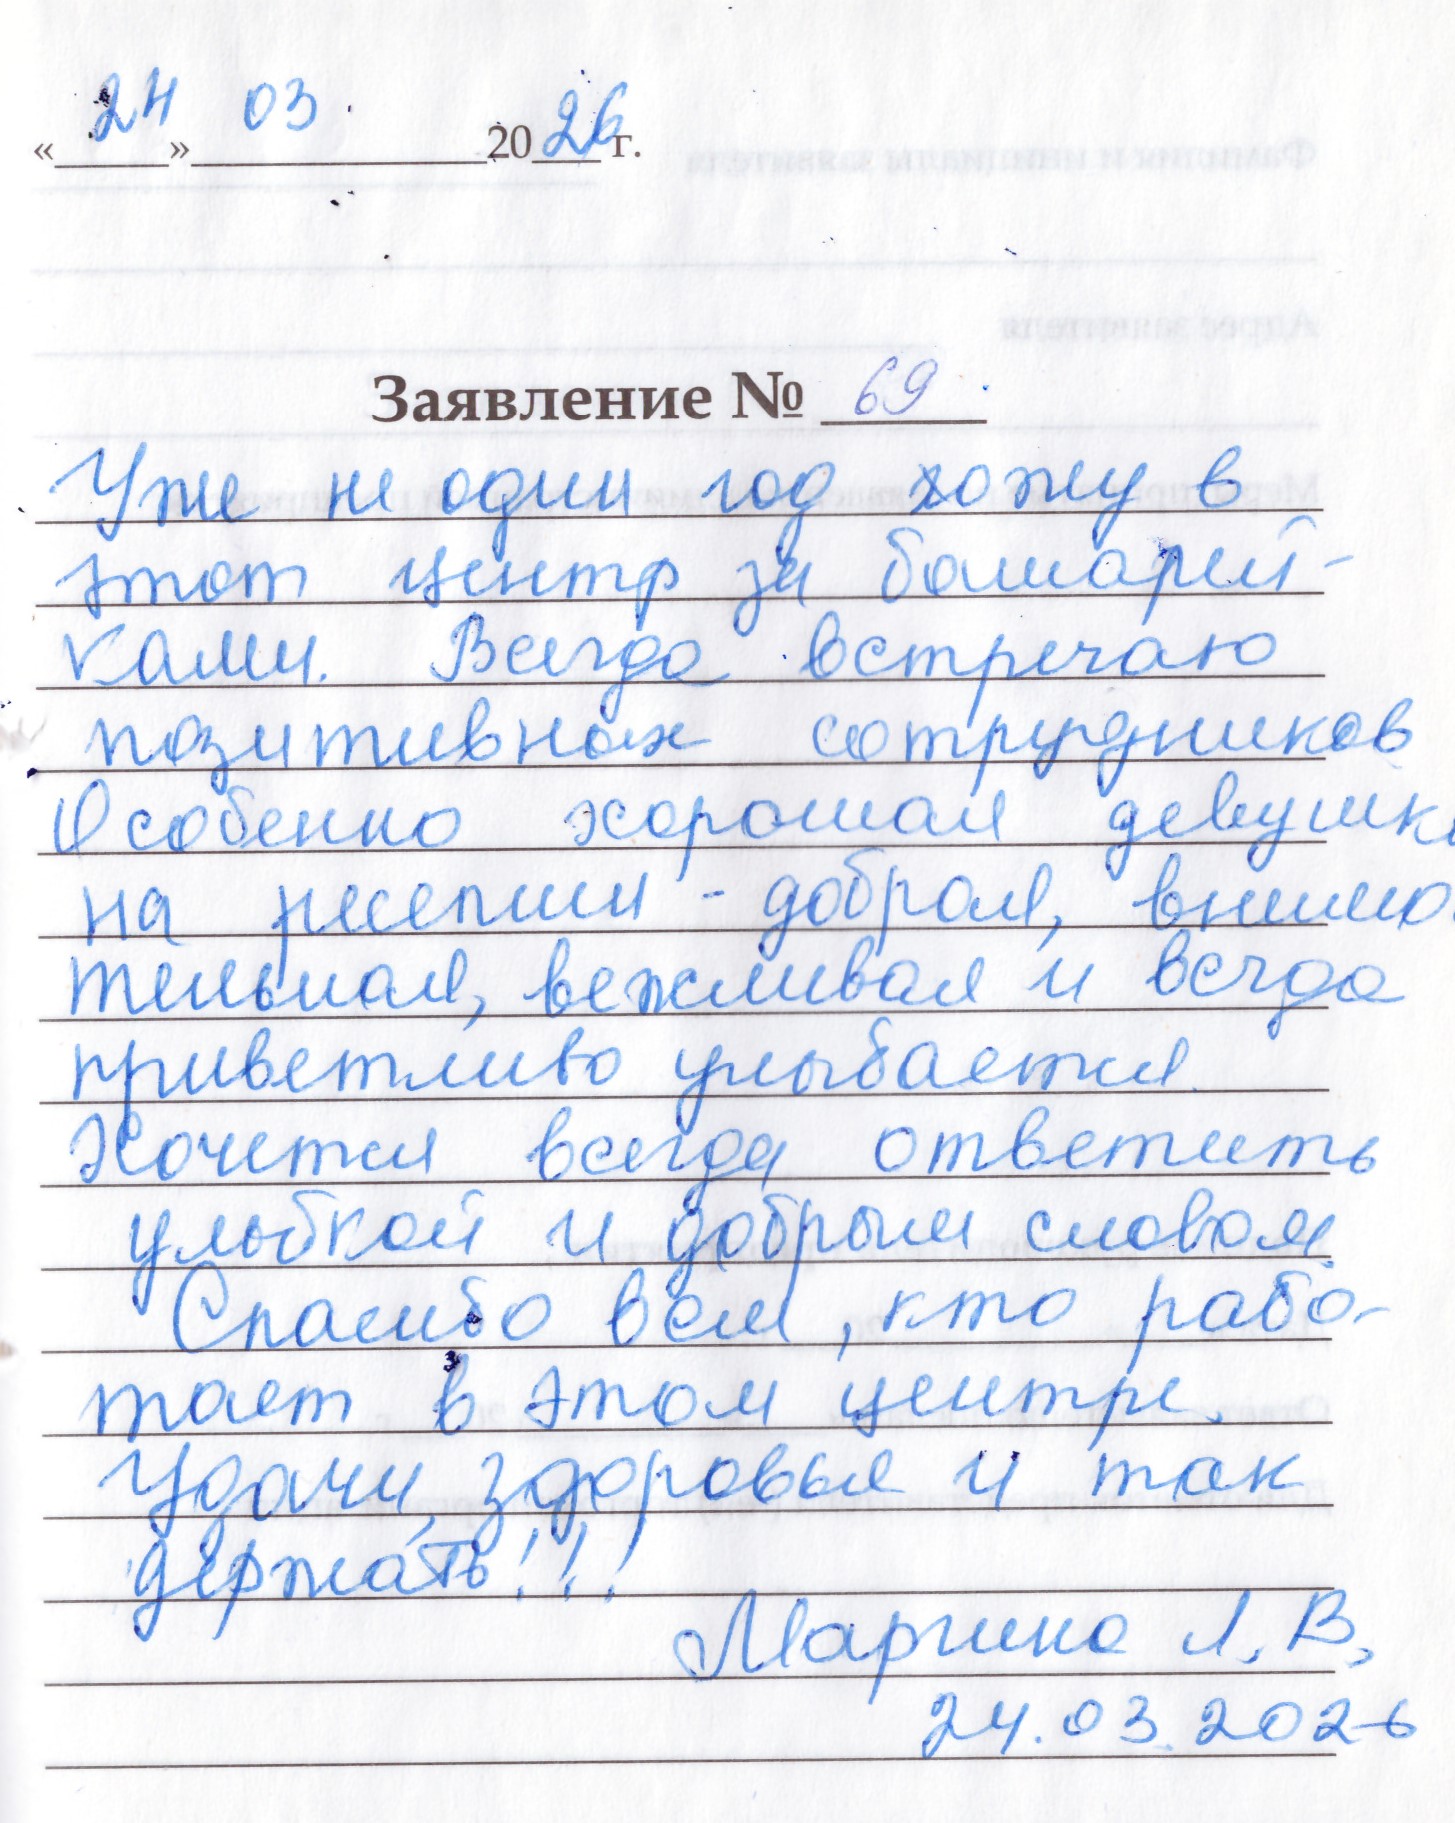 «24» 03. 2026 г.
Заявление № 69
Уже не один год хожу в
этот центр за батарей-
ками. Всегда встречаю
позитивных сотрудников
Особенно хорошая девушка
на ресепшн - добрая, внима
тельная, вежливая и всегда
приветливо улыбается.
Хочется всегда ответить
улыбкой и добрым словом
Спасибо всем, кто рабо-
тает в этом центре.
Удачи, здоровья и так
держать!!!
Маргина Л. В.
24.03.2026